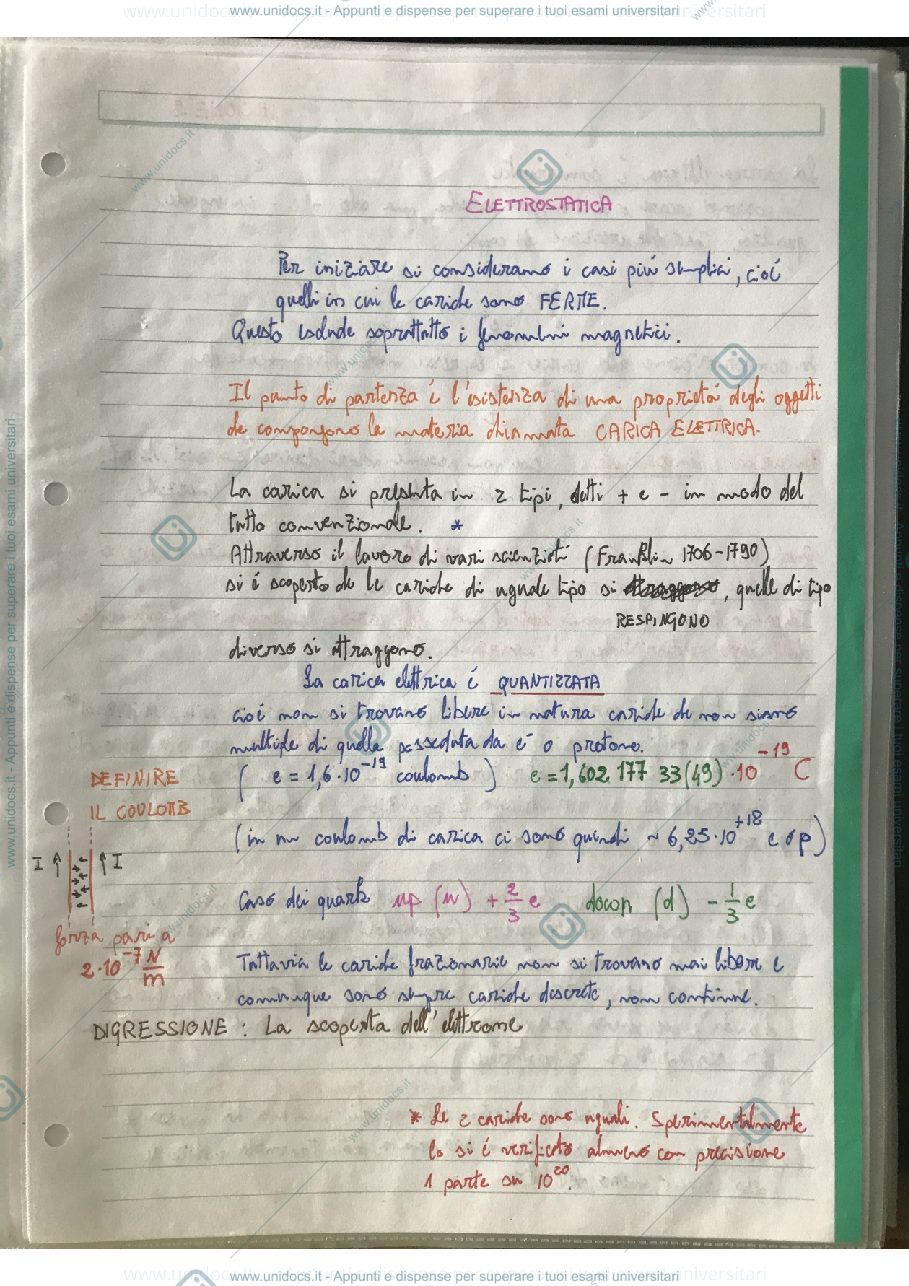 www.unidocs.it - Appunti e dispense per superare i tuoi esami universitari
ELETTROSTATICA
Per iniziare si considerano i casi più semplici, cioè
quelli in cui le cariche sono FERME.
Questo esclude soprattutto i fenomeni magnetici.
Il punto di partenza é l'esistenza di una proprietá degli oggetti
che compongono la materia chiamata CARICA ELETTRICA.
La carica si presenta in 2 tipi, detti + e - in modo del
tutto convenzionale. *
Attraverso il lavoro di vari scienziati (Franklin 1706-1790)
si é scoperto che le cariche di uguale tipo si attraggono, quelle di tipo
RESPINGONO
diverso si attraggono.
La carica elettrica é QUANTIZZATA
cioé non si trovano libere in natura cariche che non siano
multiple di quella posseduta da e⁻ o protone.
( e = 1,6·10⁻¹⁹ coulomb ) e = 1,602 177 33(49)·10⁻¹⁹ C
DEFINIRE
IL COULOMB
(in un coulomb di carica ci sono quindi ~ 6,25·10⁺¹⁸ e o p)
I ↑ ↑ I
Caso dei quark up (u) + 2/3 e down (d) - 1/3 e
forza pari a
2·10⁻⁷ N/m
Tuttavia le cariche frazionarie non si trovano mai libere e
comunque sono sempre cariche discrete, non continue.
DIGRESSIONE : La scoperta dell'elettrone
* Le 2 cariche sono uguali. Sperimentalmente
lo si é verificato almeno con precisione
1 parte su 10²⁰.
www.unidocs.it - Appunti e dispense per superare i tuoi esami universitari